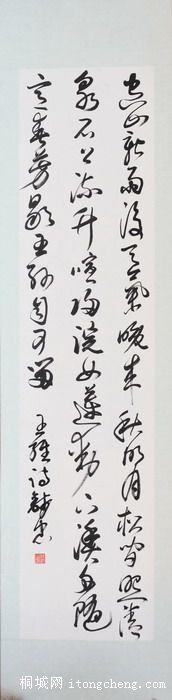 空山新雨後天氣晚來秋明月松間照清
泉石上流竹喧歸浣女蓮動下漁舟隨
意春芳歇王孫自可留
王維詩
桐城网 itongcheng.com